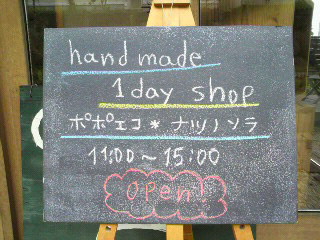 hand made
1 day shop
ポポエコ* ナツノソラ
11:00～15:00
open!